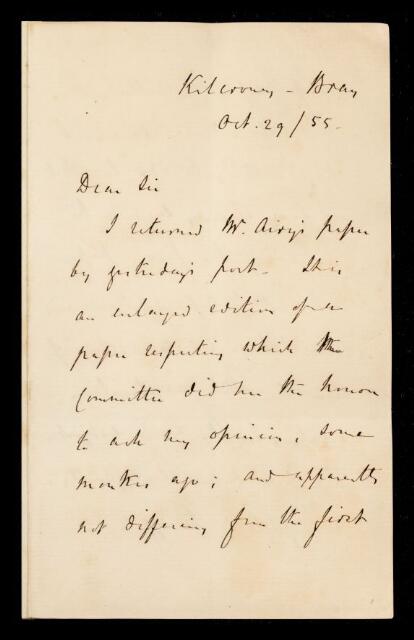 Kilcroney - Bray
Oct. 29/55.
Dear Sir
I returned Mr. Airy's paper
by yesterday's post. It is
an enlarged edition of a
paper respecting which the
Committee did me the honor
to ask my opinion, some
months ago; and apparently
not differing from the first